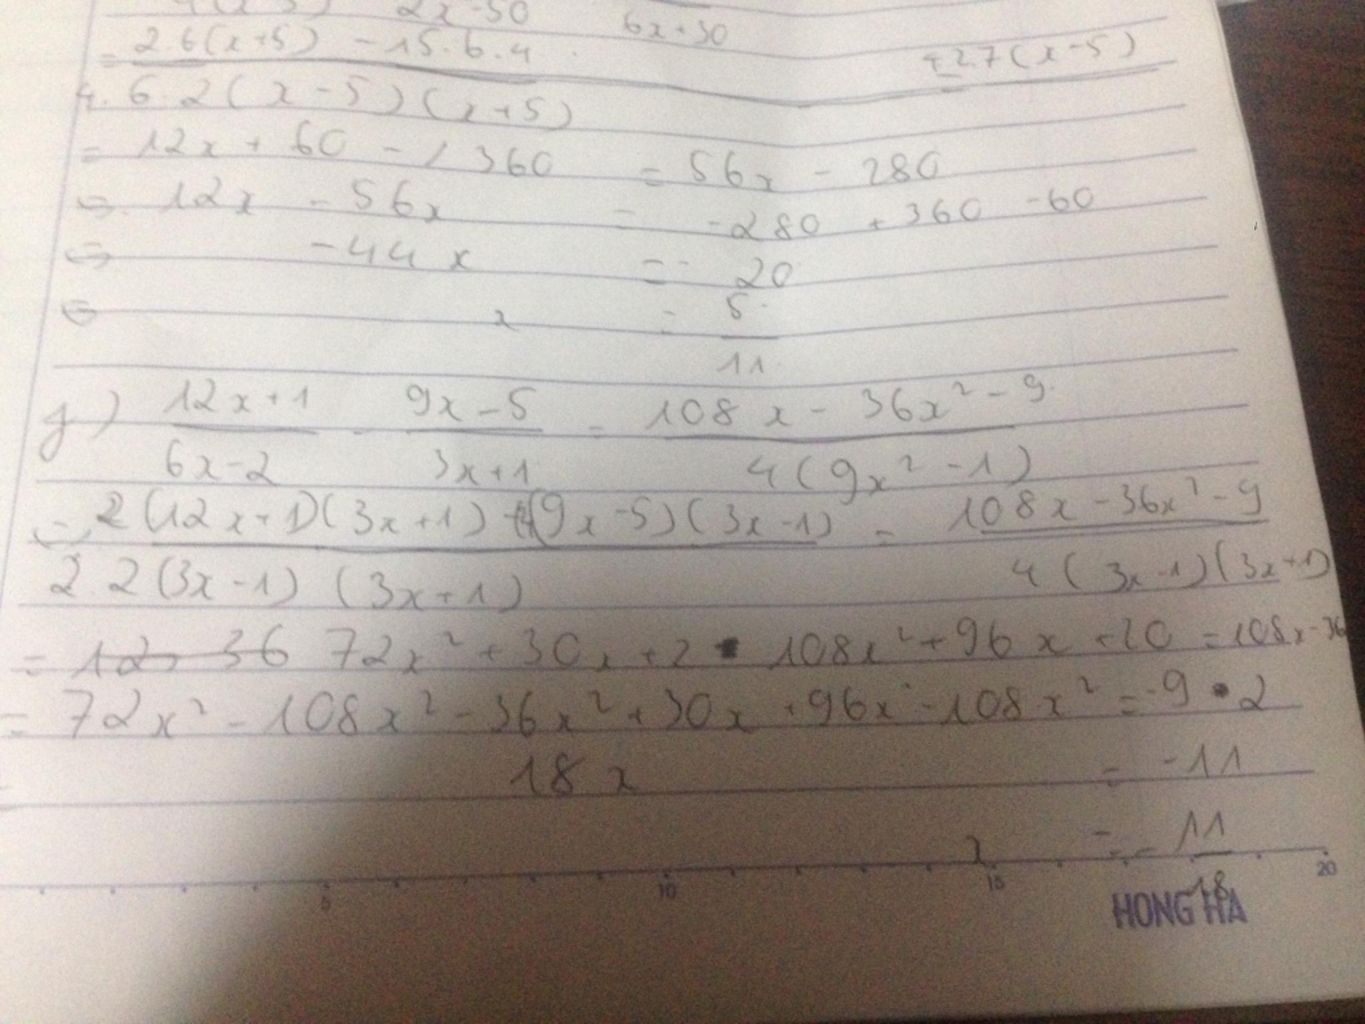 2x-50 6x+30
= 2.6(x+5) - 15.6.4 +2.7(x-5)
4.6.2(x-5)(x+5)
= 12x + 60 - 360 = 56x - 280
⇔ 12x - 56x = -280 + 360 - 60
⇔ -44x = - 20
⇔ x = 5
11
12x+1 - 9x-5 = 108x - 36x² - 9
6x-2 3x+1 4(9x²-1)
2(12x+1)(3x+1) (9x-5)(3x-1) = 108x-36x²-9
2.2(3x-1) (3x+1) 4(3x-1)(3x+1)
= 72x² + 30x + 2 - 108x² + 96x + 20 = 108x-36
= 72x² - 108x² - 36x² + 30x + 96x - 108x² = -9 - 2
18x = -11
x = - 11
18
5 10 15 20
HONG HA